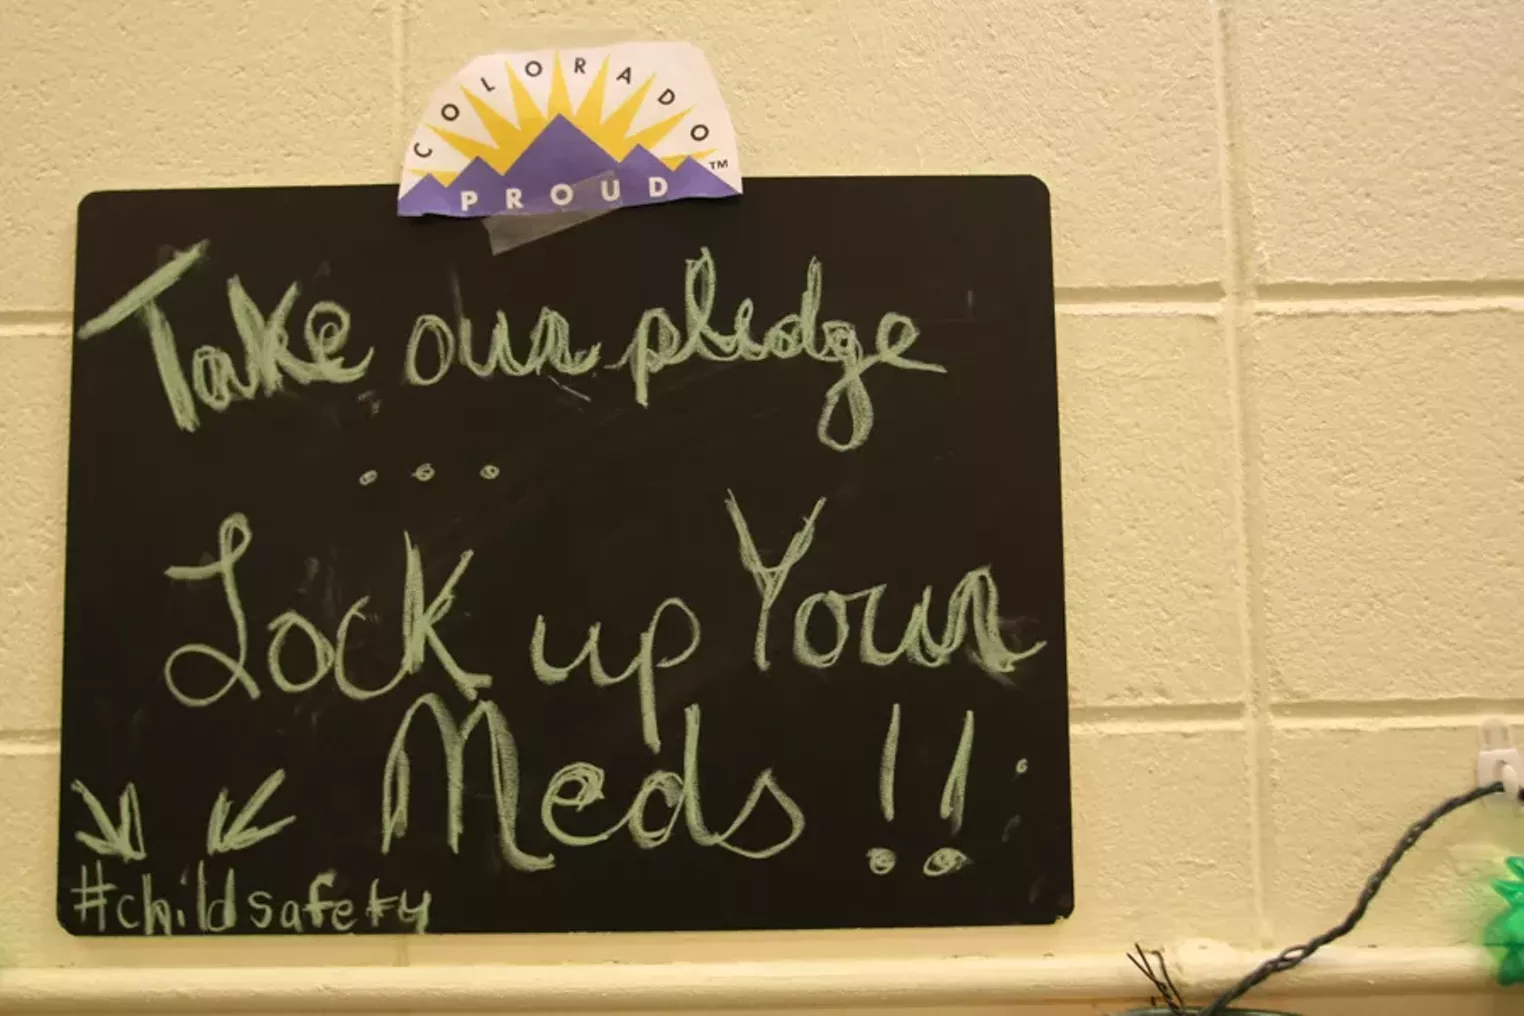 COLORADO
PROUD
TM
Take our pledge
...
Lock up Your
Meds!!
#childsafety